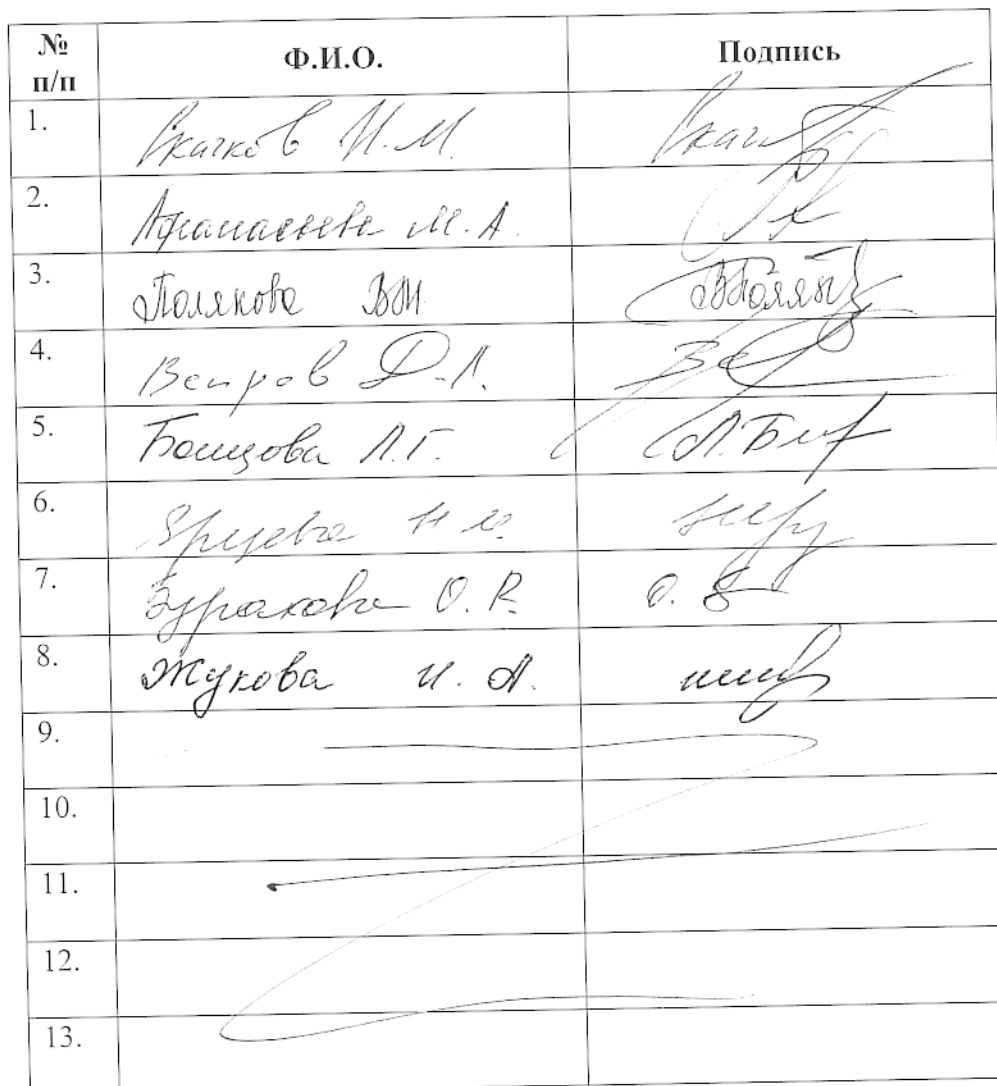 № п/п Ф.И.О. Подпись
1. Скачков И.М. Скач
2. Афанасьева М.А.
3. Полякова ВИ ВПоляк
4. Вепров Д.Л. Ве
5. Боицова Л.Г. Л.Б
6. Ярцева Н
7. Буракова О.В. О.
8. Жукова И.А.
9.
10.
11.
12.
13.